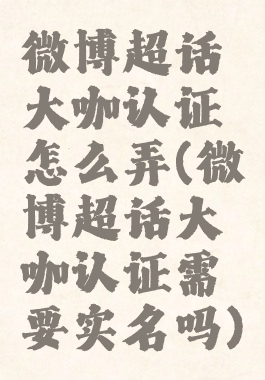 微博超话
大咖认证
怎么弄(微
博超话大
咖认证需
要实名吗)